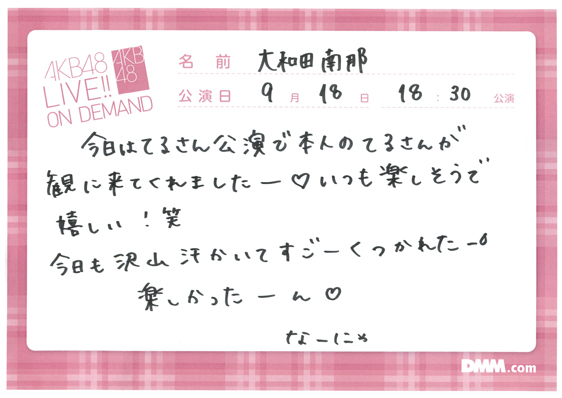 AKB48
LIVE!!
ON DEMAND
AKB
48
名前 大和田南那
公演日 9月18日 18:30公演
今日はてるさん公演で本人のてるさんが
観に来てくれましたー♡いつも楽しそうで
嬉しい！笑
今日も沢山汗かいてすごーくつかれたー。
楽しかったーん♡
なーにゃ
DMM.com